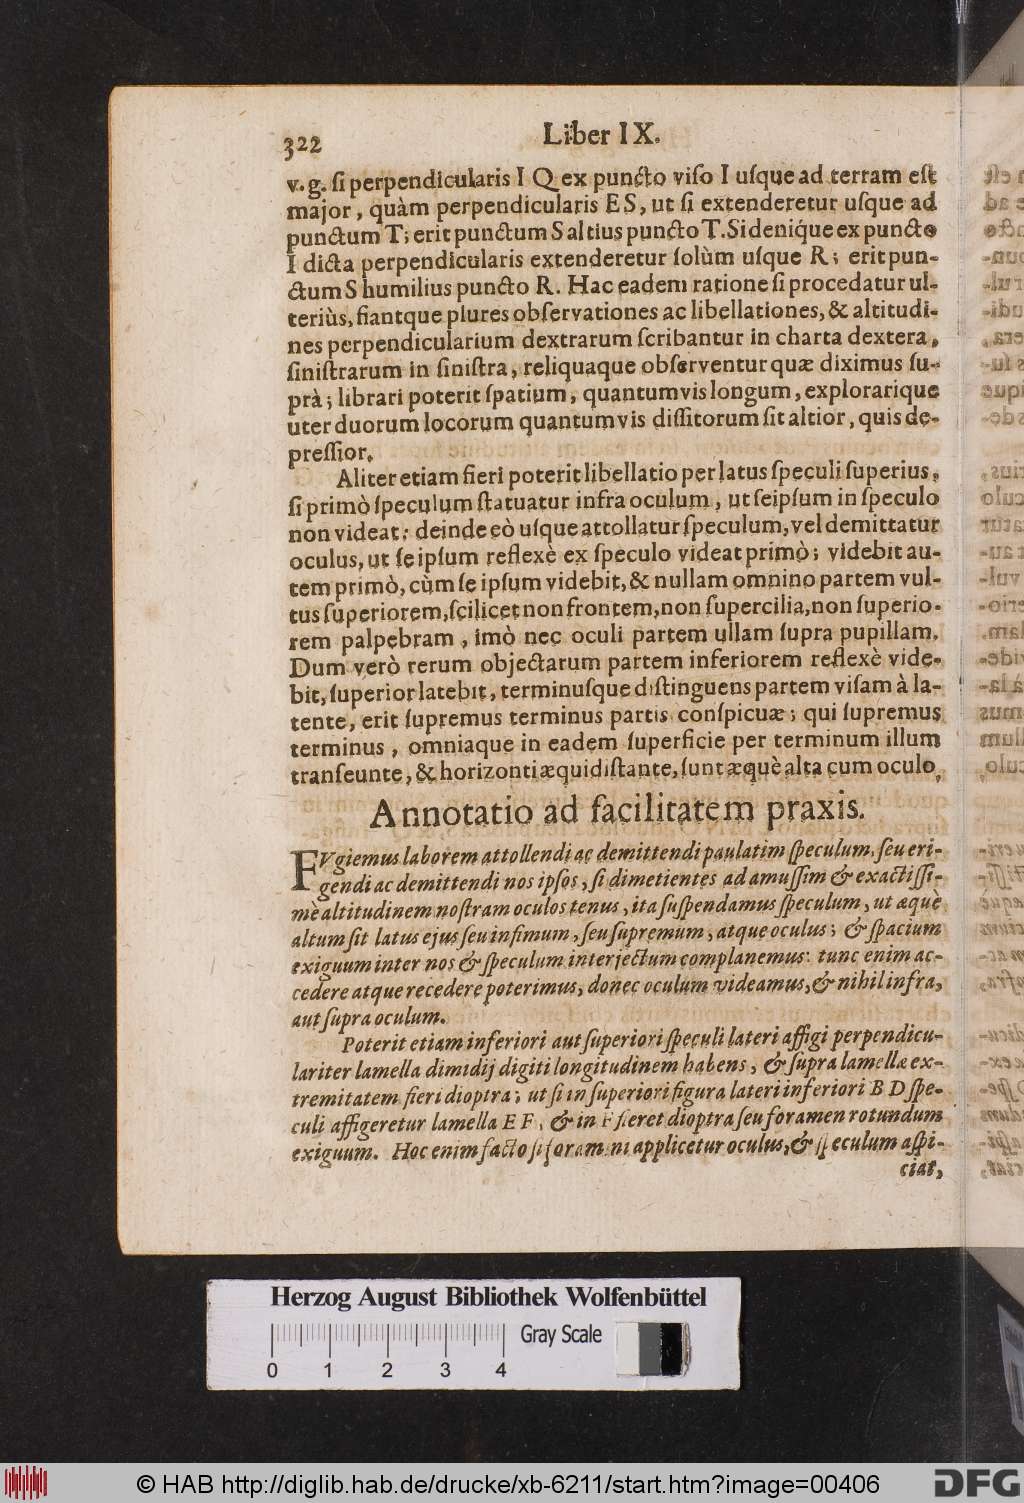 322
Liber IX.
v. g. ſi perpendicularis I Q ex puncto viſo I uſque ad terram eſt
major, quàm perpendicularis E S, ut ſi extenderetur uſque ad
punctum T; erit punctum S altius puncto T. Si deniq́ue ex puncto
I dicta perpendicularis extenderetur ſolùm uſque R; erit pun-
ctum S humilius puncto R. Hac eadem ratione ſi procedatur ul-
teriùs, fiantque plures obſervationes ac libellationes, & altitudi-
nes perpendicularium dextrarum ſcribantur in charta dextera,
ſiniſtrarum in ſiniſtra, reliquaque obſerventur quæ diximus ſu-
prà; librari poterit ſpatium, quantumvis longum, explorarique
uter duorum locorum quantumvis diſſitorum ſit altior, quis de-
preſſior.
Aliter etiam fieri poterit libellatio per latus ſpeculi ſuperius,
ſi primò ſpeculum ſtatuatur infra oculum, ut ſeipſum in ſpeculo
non videat: deinde eò uſque attollatur ſpeculum, vel demittatur
oculus, ut ſe ipſum reflexè ex ſpeculo videat primò; videbit au-
tem primò, cùm ſe ipſum videbit, & nullam omnino partem vul-
tus ſuperiorem, ſcilicet non frontem, non ſupercilia, non ſuperio-
rem palpebram, imò nec oculi partem ullam ſupra pupillam.
Dum verò rerum objectarum partem inferiorem reflexè vide-
bit, ſuperior latebit, terminuſque diſtinguens partem viſam à la-
tente, erit ſupremus terminus partis conſpicuæ; qui ſupremus
terminus, omniaque in eadem ſuperficie per terminum illum
tranſeunte, & horizonti æquidiſtante, ſunt æquè alta cum oculo.
Annotatio ad facilitatem praxis.
FVgiemus laborem attollendi ac demittendi paulatim ſpeculum, ſeu eri-
gendi ac demittendi nos ipſos, ſi dimetientes ad amuſſim & exactiſſi-
mè altitudinem noſtram oculos tenus, ita ſuſpendamus ſpeculum, ut æquè
altum ſit latus ejus ſeu infimum, ſeu ſupremum, atque oculus; & ſpacium
exiguum inter nos & ſpeculum interjectum complanemus: tunc enim ac-
cedere atque recedere poterimus, donec oculum videamus, & nihil infra,
aut ſupra oculum.
Poterit etiam inferiori aut ſuperiori ſpeculi lateri affigi perpendicu-
lariter lamella dimidij digiti longitudinem habens, & ſupra lamellæ ex-
tremitatem fieri dioptra; ut ſi in ſuperiori figura lateri inferiori B D ſpe-
culi affigeretur lamella E F, & in F fieret dioptra ſeu foramen rotundum
exiguum. Hoc enim facto ſi foramini applicetur oculus, & ſpeculum aſpi-
ciat,
Herzog August Bibliothek Wolfenbüttel
Gray Scale
0 1 2 3 4
© HAB http://diglib.hab.de/drucke/xb-6211/start.htm?image=00406
DFG